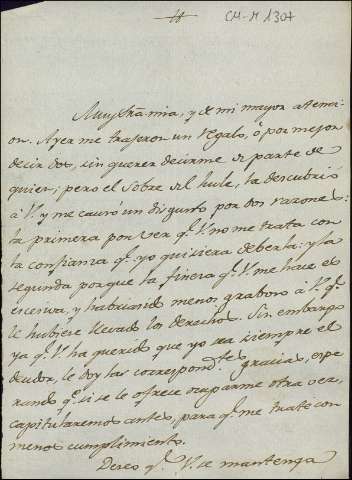 CM-M 1307
Muy Sra. mia, y de mi mayor atenci-
on. Ayer me trajeron un regalo, ó por mejor
decir dos, sin querer decirme de parte de
quien; pero el sobre del hule, la descubrió
á V. y me causó un disgusto por dos razones:
la primera por ver q.e V. no me trata con
la confianza q.e yo quisiera deberla: y la
segunda porque la fineza q.e V. me hace es
escesiva, y habria sido menos graboso á V. q.e
le hubiese llevado los derechos. Sin embargo
ya q.e V. ha querido que yo sea siempre el
deudor, le doy las correspond.tes gracias, espe
rando q.e si se le ofrece ocuparme otra vez,
capitularemos antes, para q.e me trate con
menos cumplimiento.
Deseo q.e V. se mantenga